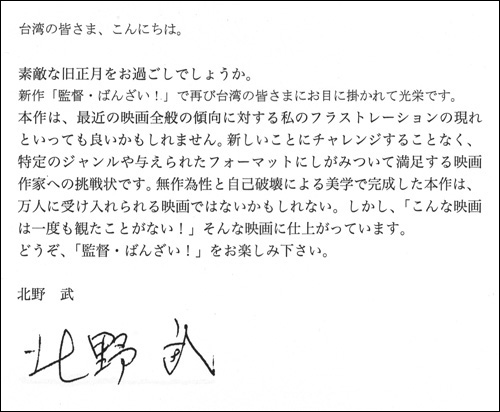 台湾の皆さま、こんにちは。
素敵な旧正月をお過ごしでしょうか。
新作「監督・ばんざい！」で再び台湾の皆さまにお目に掛かれて光栄です。
本作は、最近の映画全般の傾向に対する私のフラストレーションの現れ
といっても良いかもしれません。新しいことにチャレンジすることなく、
特定のジャンルや与えられたフォーマットにしがみついて満足する映画
作家への挑戦状です。無作為性と自己破壊による美学で完成した本作は、
万人に受け入れられる映画ではないかもしれない。しかし、「こんな映画
は一度も観たことがない！」そんな映画に仕上がっています。
どうぞ、「監督・ばんざい！」をお楽しみ下さい。
北野　武
北野 武